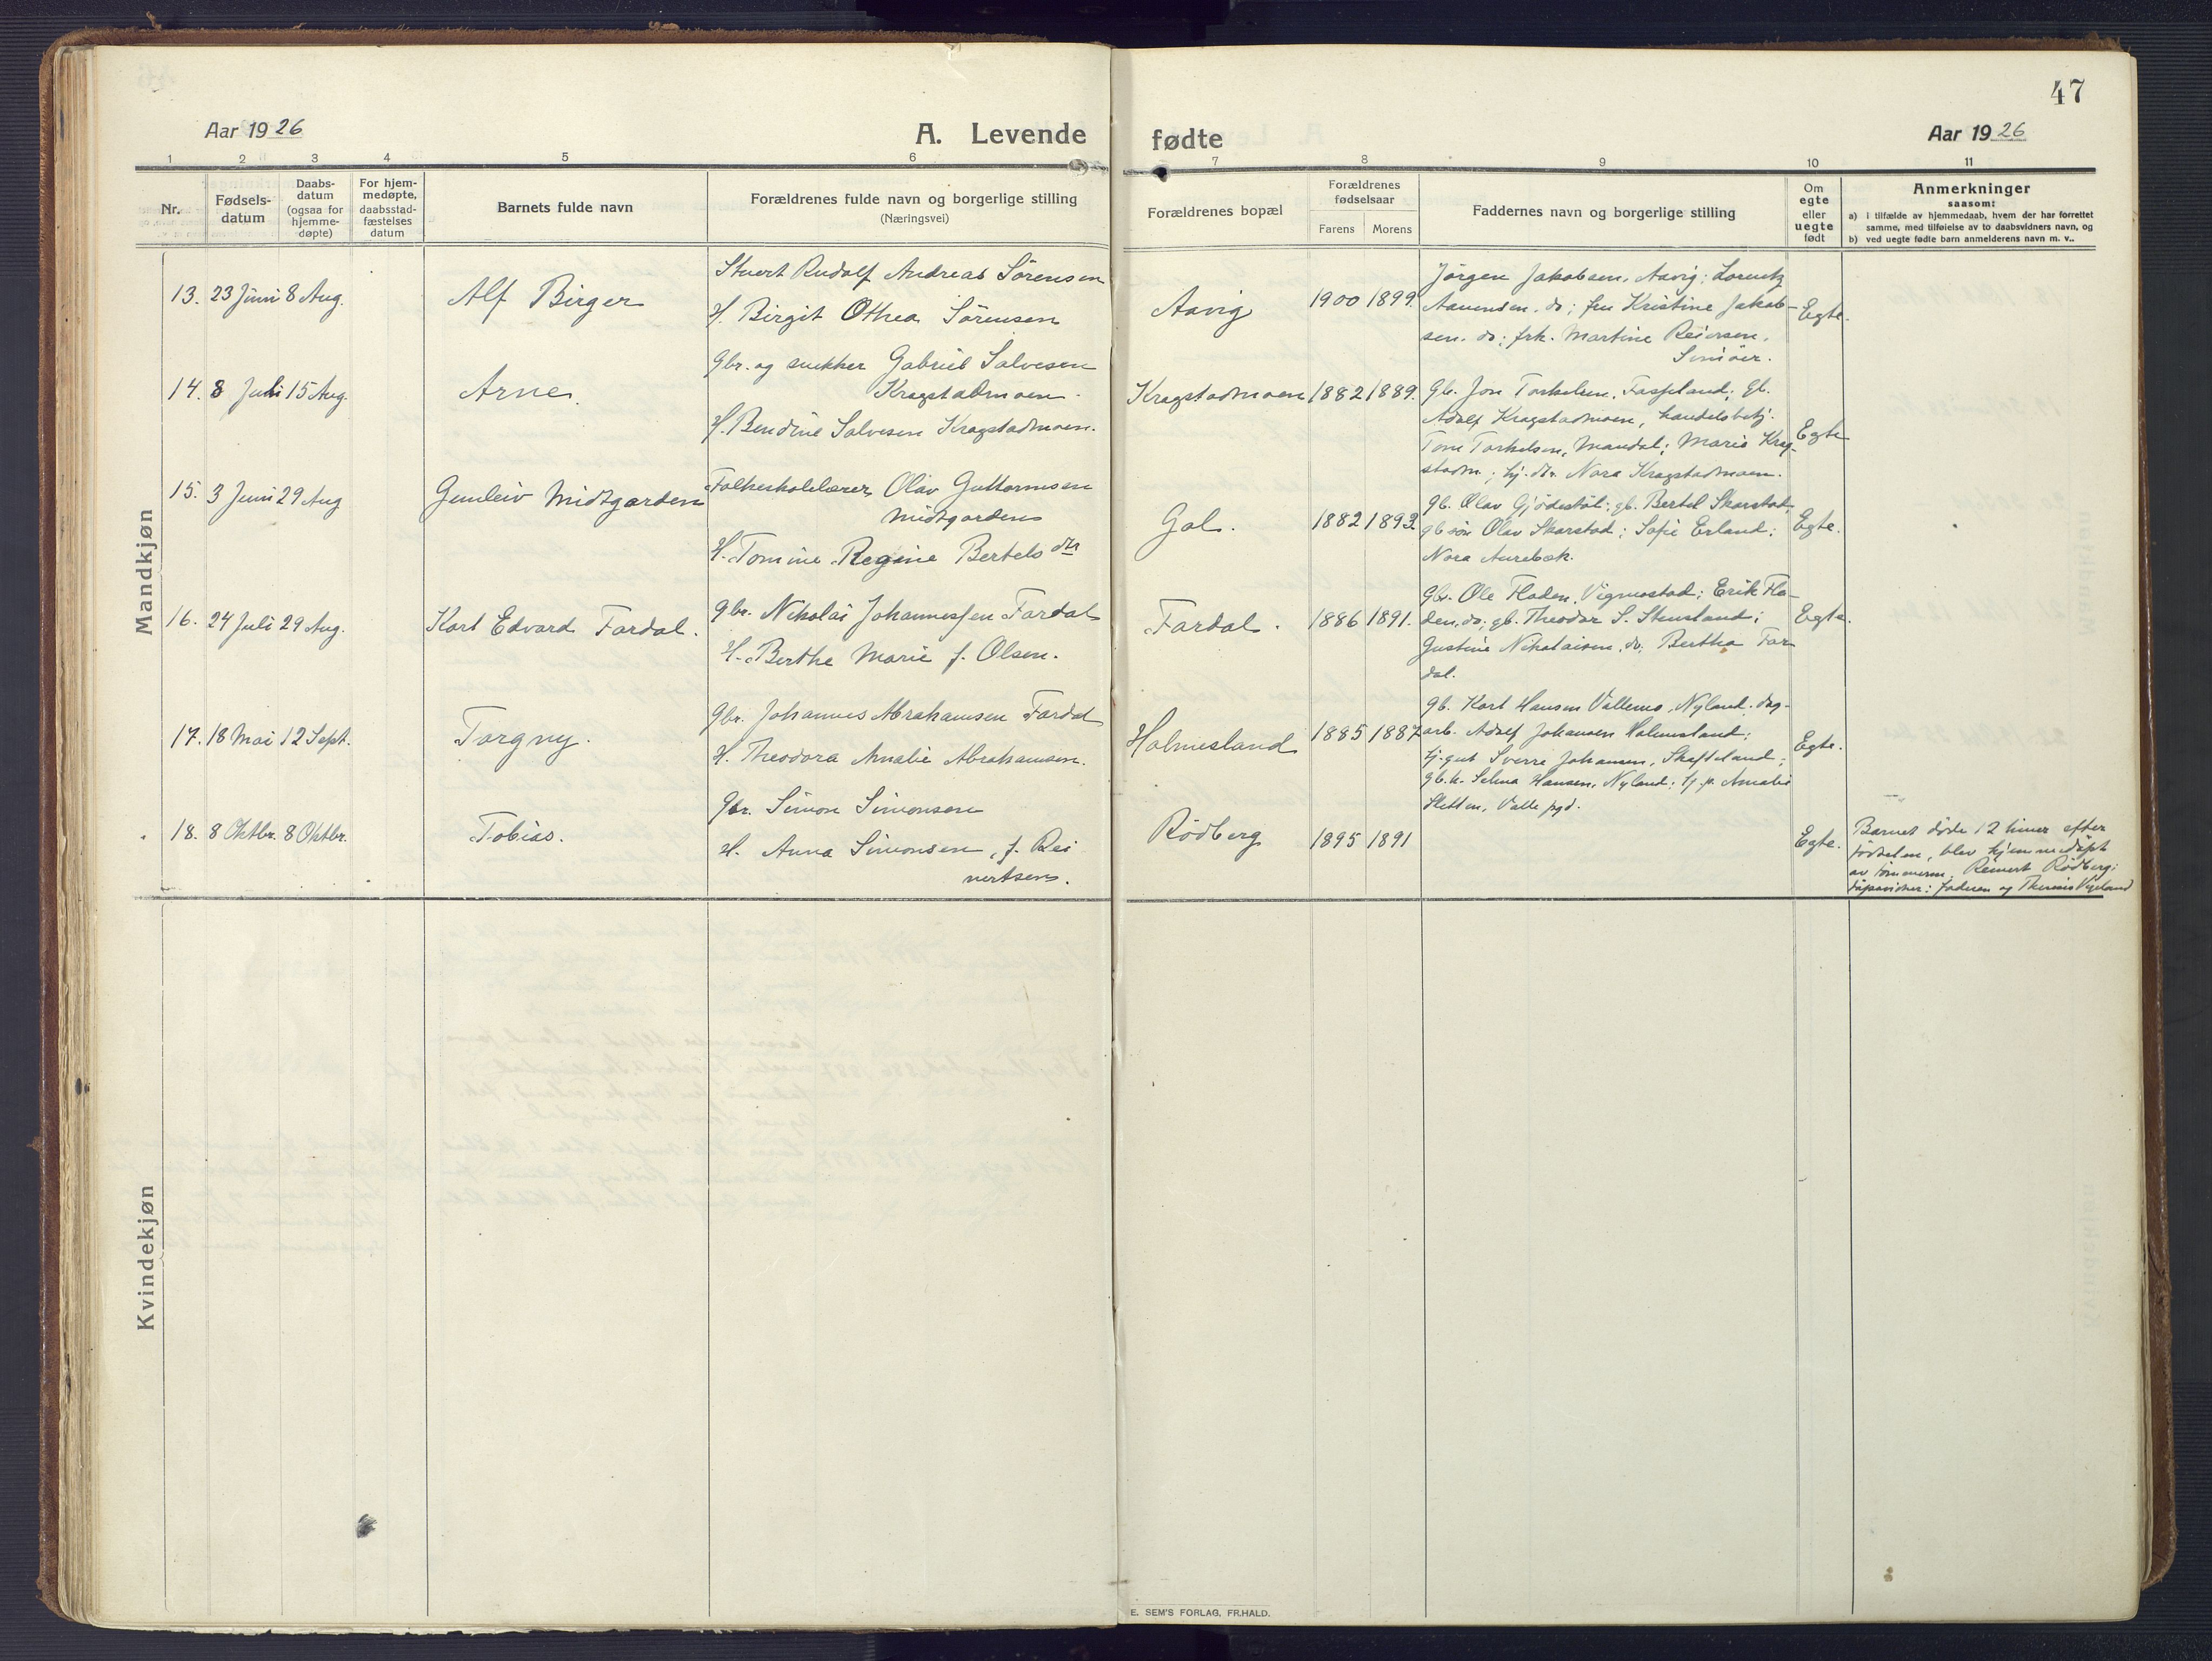 47
Aar 1926
A. Levende fødte
Aar 1926
1 2 3 4 5 6 7 8 9 10 11
Nr.
Fødsels-
datum
Daabs-
datum
(ogsaa for
hjemme-
døpte)
For hjem-
medøpte,
daabsstad-
fæstelses
datum
Barnets fulde navn
Forældrenes fulde navn og borgerlige stilling
(Næringsvei)
Forældrenes bopæl
Forældrenes
fødselsaar
Farens Morens
Faddernes navn og borgerlige stilling
Om
egte
eller
uegte
født
Anmerkninger
saasom:
a) i tilfælde av hjemmedaab, hvem der har forrettet
samme, med tilføielse av to daabsvidners navn, og
b) ved uegte fødte barn anmelderens navn m. v..
Mandkjøn
13. 23 Juni 8 Aug.
Alf Birger
Rudolf Andreas Sörensen
H. Birgit Othea Sörensen
Aavig
1900 1899.
Jörgen Jakobsen, Aavig; Lorentz
Aanensen, do; fru Kristine Jakob-
sen. do; frk. Martine Reiersen,
Egte.
14. 8 Juli 15 Aug.
Arne.
Gbr. og snekker Gabriel Salvesen
Kragstadmoen.
H. Bendine Salvesen Kragstadmoen.
Kragstadmoen
1882 1889.
gb. Jon Torkelsen, Fasseland; gb.
Adolf Kragstadmoen, handelsbetj.
Tom Torkelsen, Mandal; Marie Krag-
stadm.; hj. dtr. Nora Kragstadmoen.
Egte
15. 3 Juni 29 Aug
Gunleiv Midtgarden
Folkeskolelærer Olav Guttormsen
Midtgarden
H. Tomine Regine Bertels dtr
Gol.
1882 1893.
gb. Olav Gjödestöl; gb. Bertel Skarstad;
gb sön Olav Skarstad; Sofie Erland;
Nora Aurebæk.
Egte.
16. 24 Juli 29 Aug.
Kart Edvard Fardal.
gbr. Nikolai Johannessen Fardal
H. Berthe Marie f. Olsen.
Fardal.
1886 1891.
Gbr. Ole Floden, Vigmostad; Erik Flo-
den, do; gb. Theodor S. Stensland;
Gustine Nikolaisen, do; Bertha Far
dal.
Egte.
17. 18 Mai 12 Sept.
Torgny.
Gbr. Johannes Abrahamsen Fardal
H. Theodora Amalie Abrahamsen.
Holmesland
1885 1887
gb. Kart Hansen Vallemo, Nyland; dag-
arb. Adolf Johansen Holmesland;
hj. gut Sverre Johansen, Skofteland;
gb. k. Selma Hansen, Nyland; hj. p. Amalie
Sletten, Valle pgd.
Egte.
18. 8 Oktbr. 8 Oktbr.
Tobias.
Gbr. Simon Simonsen
H. Anna Simonsen, f. Rei
nertsen.
Rödberg
1895 1891
Egte.
Barnet døde 12 timer efter
fødselen, blev hjemmedøpt
av Reinert Rödberg;
faderen og Vigeland
Kvindekjøn
E. SEM'S FORLAG, FR.HALD.